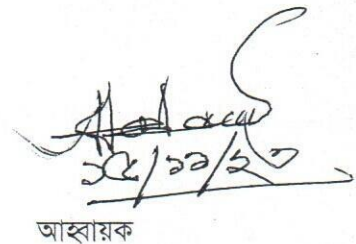 ১৫/১১/২৩
আহবায়ক